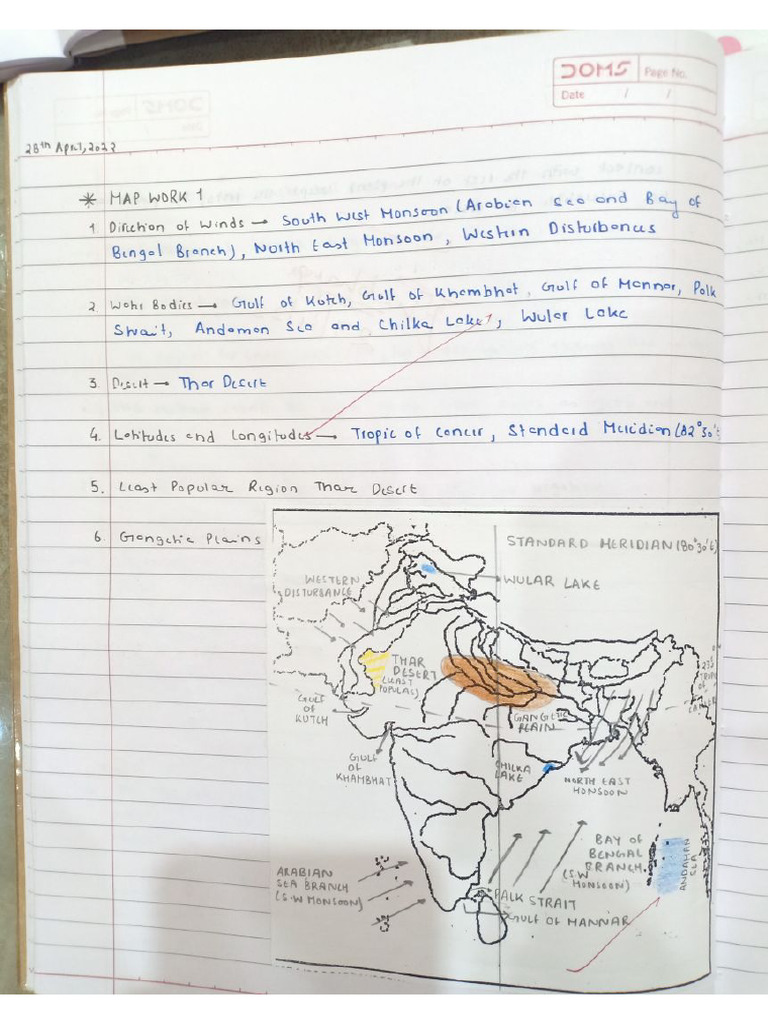 DOMS
Page No.
Date / /
28th April, 2022
* MAP WORK 1
1. Direction of Winds → South West Monsoon (Arabian Sea and Bay of
Bengal Branch), North East Monsoon, Western Disturbances
2. Water Bodies → Gulf of Kutch, Gulf of Khambhat, Gulf of Mannar, Palk
Strait, Andaman Sea and Chilka Lake, Wular Lake
3. Desert → Thar Desert
4. Latitudes and Longitudes → Tropic of Cancer, Standard Meridian (82°30'E
5. Least Popular Region Thar Desert
6. Gangetic Plains
STANDARD MERIDIAN (80°30'E)
WULAR LAKE
WESTERN
DISTURBANCE
THAR
DESERT
(LEAST
POPULAS)
GULF
OF
KUTCH
GANGETIC
PLAIN
OF
GULF
OF
KHAMBHAT
CHILKA
LAKE
NORTH EAST
MONSOON
BAY OF
BENGAL
BRANCH
(S.W
MONSOON)
ANDAMAN
SEA
ARABIAN
SEA BRANCH
(S.W MONSOON)
PALK STRAIT
GULF OF MANNAR